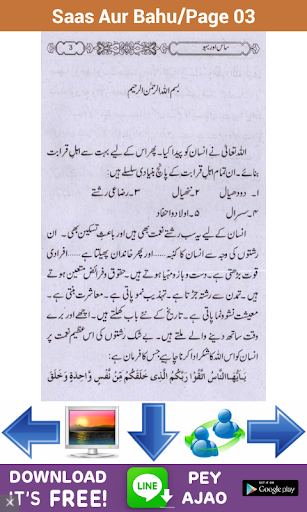 Saas Aur Bahu/Page 03
3
ساس اور بہو
بسم اللہ الرحمٰن الرحیم
اللہ تعالیٰ نے انسان کو پیدا کیا۔ پھر اس کے لیے بہت سے اہلِ قرابت
بنائے۔ ان تمام اہلِ قرابت کے پانچ بنیادی سلسلے ہیں:
۱۔ ددھیال ۲۔ ننھیال ۳۔ رضاعی رشتے
۴۔ سسرال ۵۔ اولاد و احفاد
انسان کے لیے یہ سب رشتے نعمت بھی ہیں اور باعثِ تسکین بھی۔ ان
رشتوں کی وجہ سے انسان کا کنبہ ...... اور پھر خاندان پھیلتا ہے ...... افرادی
قوت بڑھتی ہے۔ دست و بازو مہیا ہوتے ہیں۔ حقوق و فرائض متعین ہوتے
ہیں۔ تمدن سے رشتہ جڑتا ہے۔ تہذیب نمو پاتی ہے۔ معاشرت بنتی ہے۔
معیشت نشوونما پاتی ہے۔ تاریخ کو نام ملتے ہیں۔ دکھ بانٹنے، اچھے اور برے
وقت ساتھ دینے والے ملتے ہیں۔ بے شک رشتوں کی اس عظیم نعمت پر
انسان کو اس اللہ کا شکر ادا کرنا چاہیے جس کا فرمان ہے:
يٰٓاَيُّهَا النَّاسُ اتَّقُوْا رَبَّكُمُ الَّذِىْ خَلَقَكُمْ مِّنْ نَّفْسٍ وَّاحِدَةٍ وَّخَلَقَ
DOWNLOAD
IT'S FREE!
LINE
PEY
AJAO
ANDROID APP ON
Google play